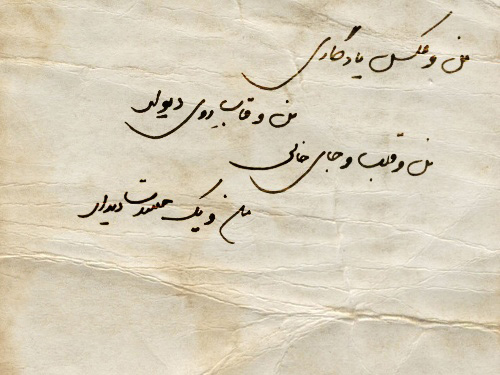 من و عکس یادگاری
من و قاب روی دیوار
من و قلب و جای خالی
من و یک حسرت دیدار